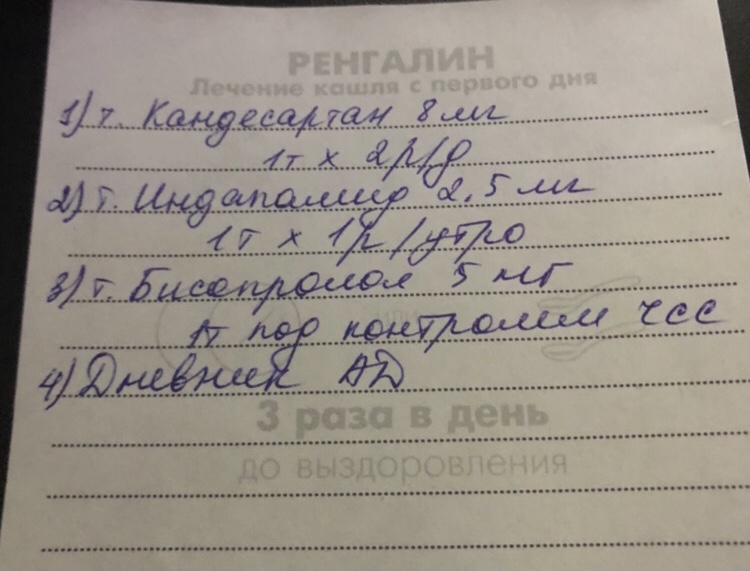 РЕНГАЛИН
Лечение кашля с первого дня
1) т. Кандесартан 8 мг
1т х 2р/д
2) т. Индапамид 2,5 мг
1т х 1р/утро
3) т. Бисопролол 5 мг
или
1т под контролем ЧСС
4) Дневник АД
3 раза в день
до выздоровления